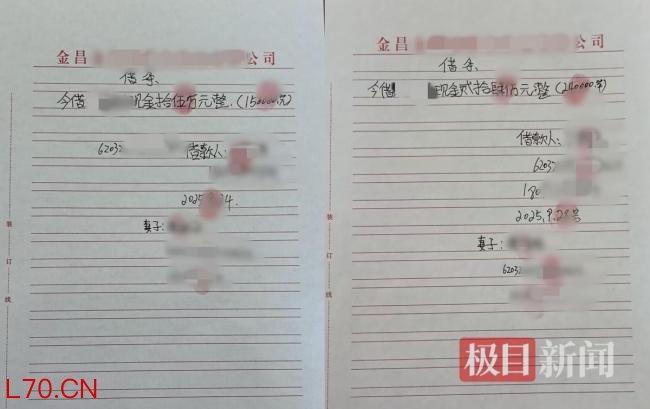 金昌
公司
借条
今借
现金拾伍万元整.(150000元)
6203
借款人:
2025
24.
妻子:
装
订
线
L70.CN
金昌
公司
借条
今借
现金贰拾肆万元整(240000元)
借款人:
6203
180
2025.9.28号
妻子:
6203
装
订
线
极目新闻